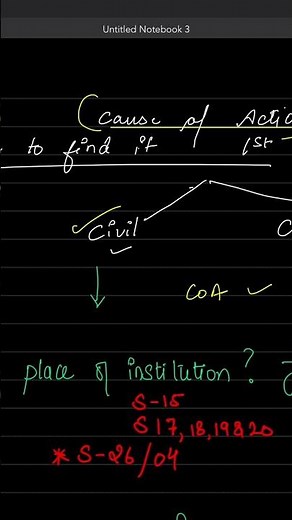 Untitled Notebook 3
(Cause of Actio
to find it 1st
Civil C
COA
place of institution?
S-15
S 17, 18, 19 & 20
* S-26/04